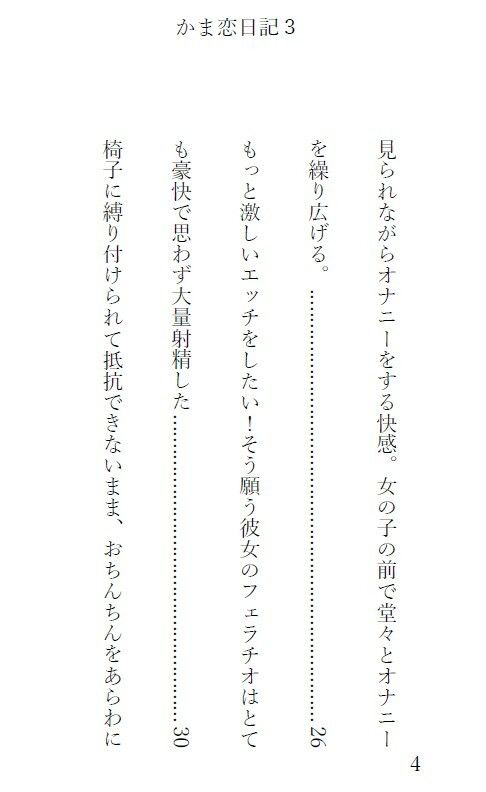 かま恋日記３
見られながらオナニーをする快感。女の子の前で堂々とオナニー
を繰り広げる。………………………………………………………26
もっと激しいエッチをしたい！そう願う彼女のフェラチオはとて
も豪快で思わず大量射精した………………………………………30
椅子に縛り付けられて抵抗できないまま、おちんちんをあらわに
4